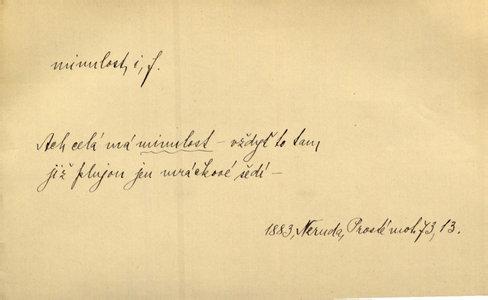 minulost, i, f.
Ach celá má minulost – vždyť to tam,
již plujou jen mráčkové šedí –
1883, Neruda, Prosté mot. 73, 13.